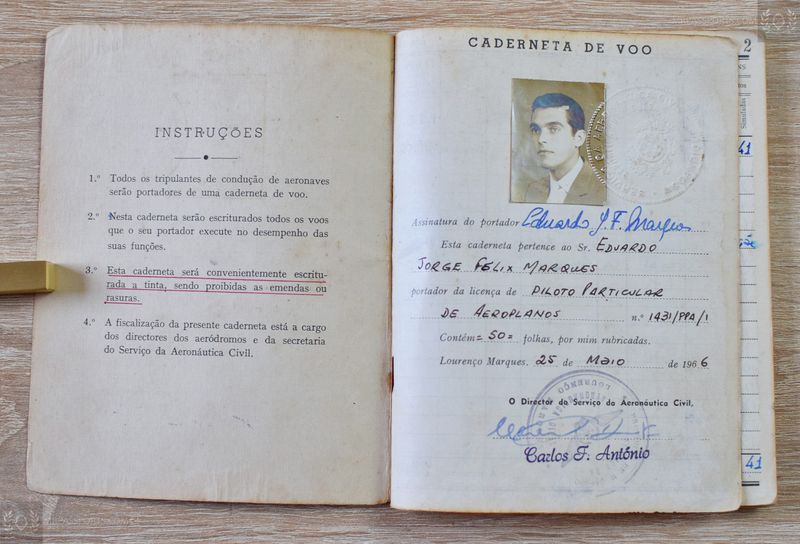 INSTRUÇÕES
1.º Todos os tripulantes de condução de aeronaves
serão portadores de uma caderneta de voo.
2.º Nesta caderneta serão escriturados todos os voos
que o seu portador execute no desempenho das
suas funções.
3.º Esta caderneta será convenientemente escritu-
rada a tinta, sendo proibidas as emendas ou
rasuras.
4.º A fiscalização da presente caderneta está a cargo
dos directores dos aeródromos e da secretaria
do Serviço da Aeronáutica Civil.
CADERNETA DE VOO
Assinatura do portador Eduardo J. F. Marques
Esta caderneta pertence ao Sr. EDUARDO
JORGE FÉLIX MARQUES
portador da licença de PILOTO PARTICULAR
DE AEROPLANOS n.º 1431/PPA/1
Contém = 50 = folhas, por mim rubricadas.
Lourenço Marques, 25 de MAIO de 1966
O Director do Serviço da Aeronáutica Civil,
Carlos F. António
2
Simulados
41
41